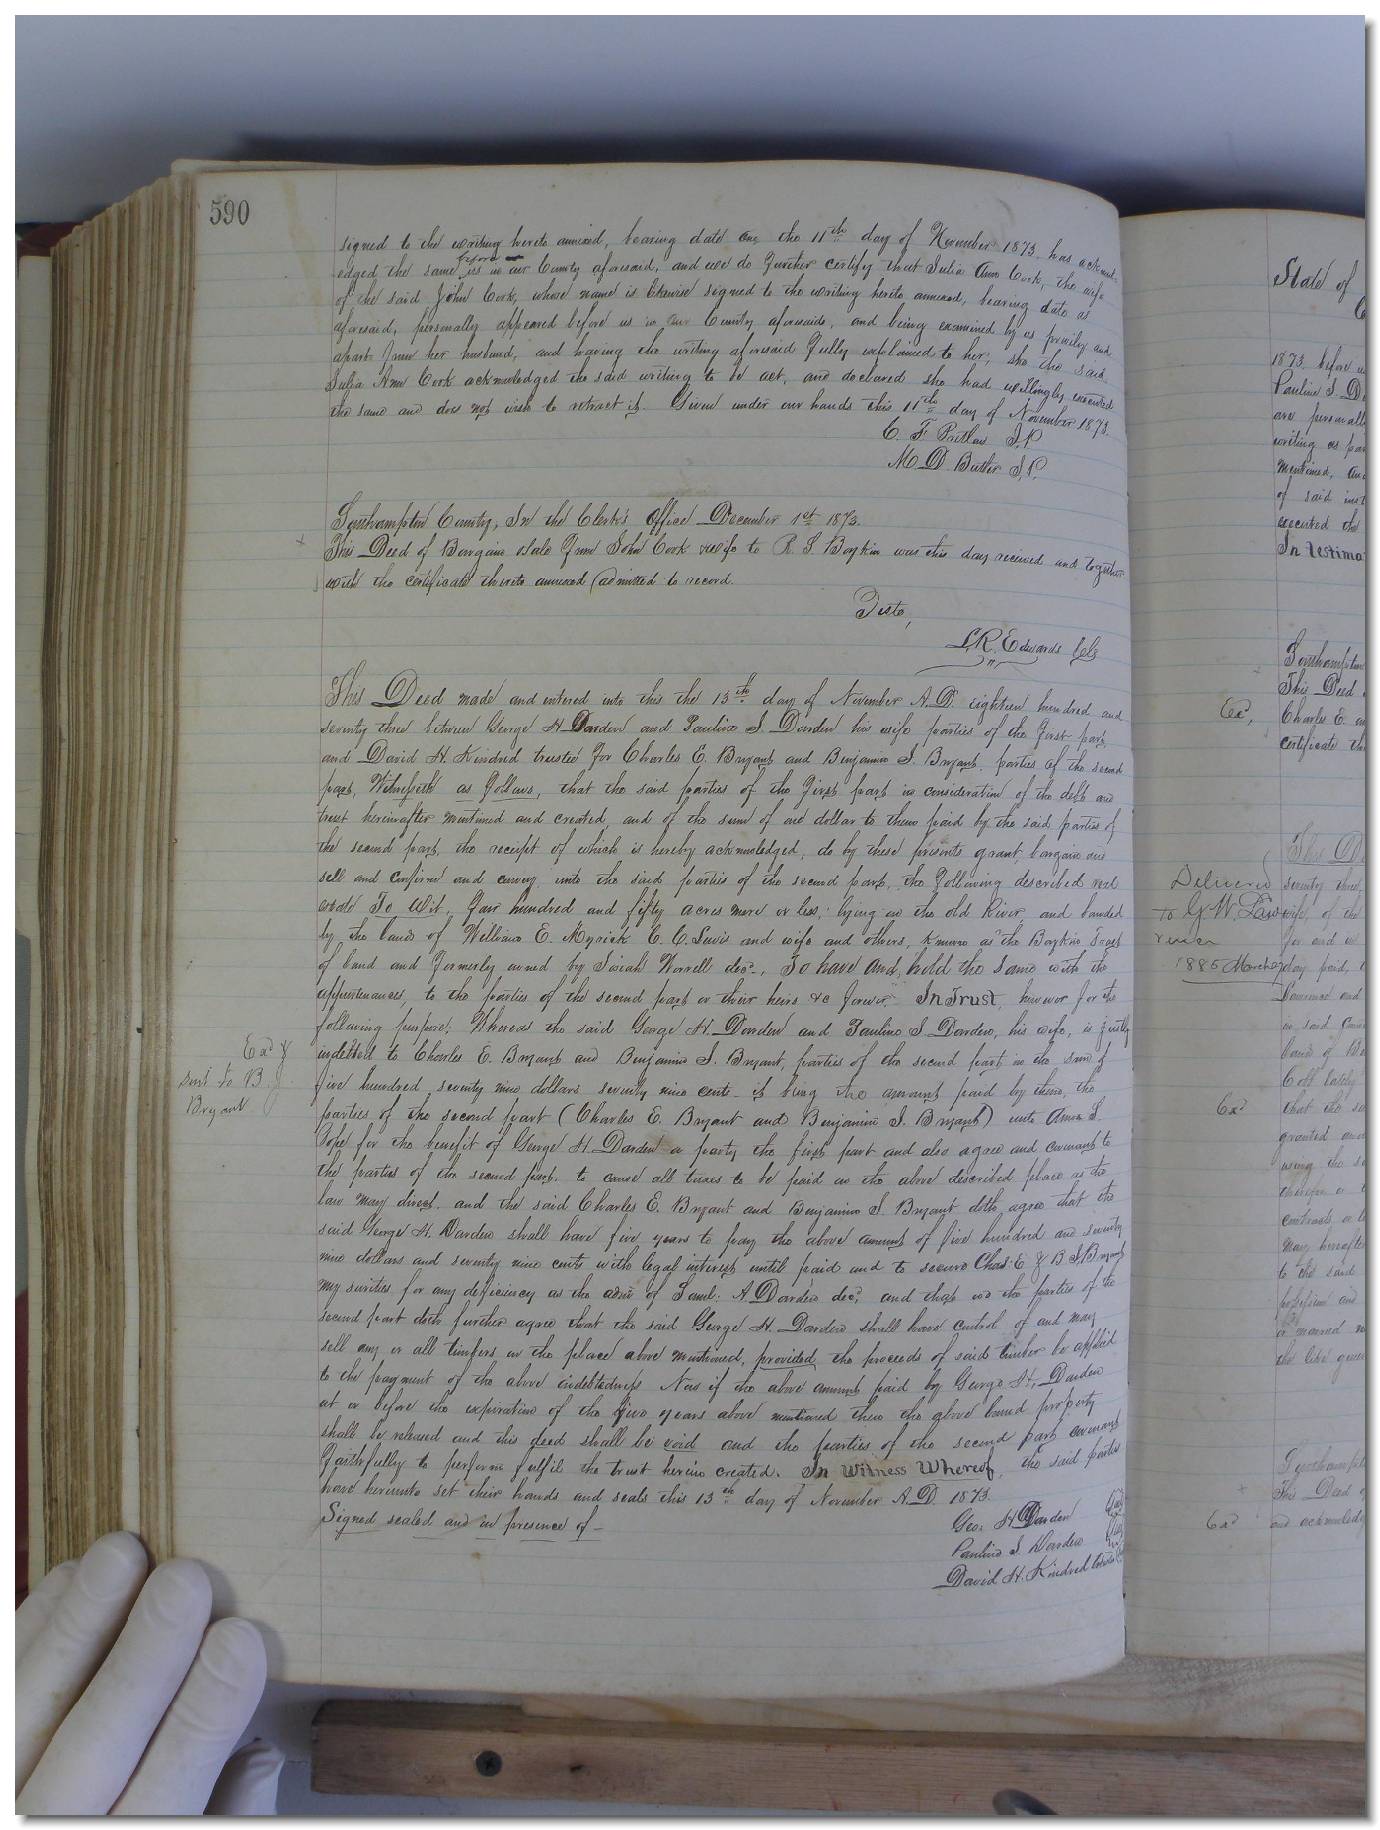 590
signed to the writing hereto annexed, bearing date on the 11th day of November 1873, has acknowl-
edged the same before us in our County aforesaid, and we do further certify that Julia Ann Cork, the wife
of the said John Cork, whose name is likewise signed to the writing hereto annexed, bearing date as
aforesaid, personally appeared before us in our County aforesaid, and being examined by us privily and
apart from her husband, and having the writing aforesaid fully explained to her, she the said
Julia Ann Cork acknowledged the said writing to be act, and declared she had willingly executed
the same and does not wish to retract it. Given under our hands this 11th day of November 1873.
C. F. Pretlow J.P.
M D Butler J.P.
Southampton County, In the Clerk's Office December 1st 1873.
This Deed of Bargain & Sale from John Cork & wife to R. S. Boykin was this day received and together
with the certificate thereto annexed admitted to record.
Teste,
L.R. Edwards Clk
This Deed made and entered into this the 13th day of November A.D. eighteen hundred and
seventy three between George H. Darden and Pauline S. Darden his wife parties of the first part,
and David H. Kindred trustee for Charles E. Bryant and Benjamin S. Bryant, parties of the second
part, Witnesseth as follows, that the said parties of the first part in consideration of the debt and
trust hereinafter mentioned and created, and of the sum of one dollar to them paid by the said parties of
the second part, the receipt of which is hereby acknowledged, do by these presents grant, bargain and
sell and confirm and convey unto the said parties of the second part, the following described real
estate To Wit, four hundred and fifty acres more or less, lying on the old River, and bounded
by the lands of William E. Myrick C. C. Lewis and wife and others, known as the Boykin Tract
of land and formerly owned by Josiah Worrell decd., To have and hold the same with the
appurtenances, to the parties of the second part or their heirs &c forever. In Trust, however for the
following purpose, Whereas the said George H. Darden and Pauline S Darden, his wife, is justly
indebted to Charles E. Bryant and Benjamin S. Bryant, parties of the second part in the sum of
five hundred, seventy nine dollars seventy nine cents - it being the amount paid by them, the
parties of the second part (Charles E. Bryant and Benjamin S. Bryant) unto Amos S
Pope for the benefit of George H. Darden a party the first part and also agree and covenant to
the parties of the second part. to cause all taxes to be paid on the above described place as the
law may direct, and the said Charles E. Bryant and Benjamin S. Bryant doth agree that the
said George H. Darden shall have five years to pay the above amount of five hundred and seventy
nine dollars and seventy nine cents with legal interest until paid and to secure Chas. E & B S Bryant
my surities for any deficiency as the adm of Saml. A Darden decd, and that we the parties of the
second part doth further agree that the said George H. Darden shall have control of and may
sell any or all timbers on the place above mentioned, provided the proceeds of said timber be applied
to the payment of the above indebtedness Now if the above amount paid by George H. Darden
at or before the expiration of the five years above mentioned then the above bound property
shall be released and this deed shall be void and the parties of the second part covenant
faithfully to perform fulfil the trust herein created. In Witness Whereof, the said parties
have hereunto set their hands and seals this 13th day of November A.D. 1873.
Signed sealed and in presence of -
Geo. H Darden
Pauline S. Darden
David H. Kindred trustee
Exd &
sent to B
Bryant
State of
1873, before
Pauline S. D
are personall
writing as par
mentioned, an
of said inst
executed the
In Testimo
Southampton
This Deed
Charles E. an
certificate th
Exd,
This De
seventy three,
Delivered
to G W
1885 March
day paid,
in said
land of
that the
Exd
granted
using the
therefor
contracts
may hereafter
to the said
possession and
a married
the like
Southampton
This Deed
and acknowledg
Exd